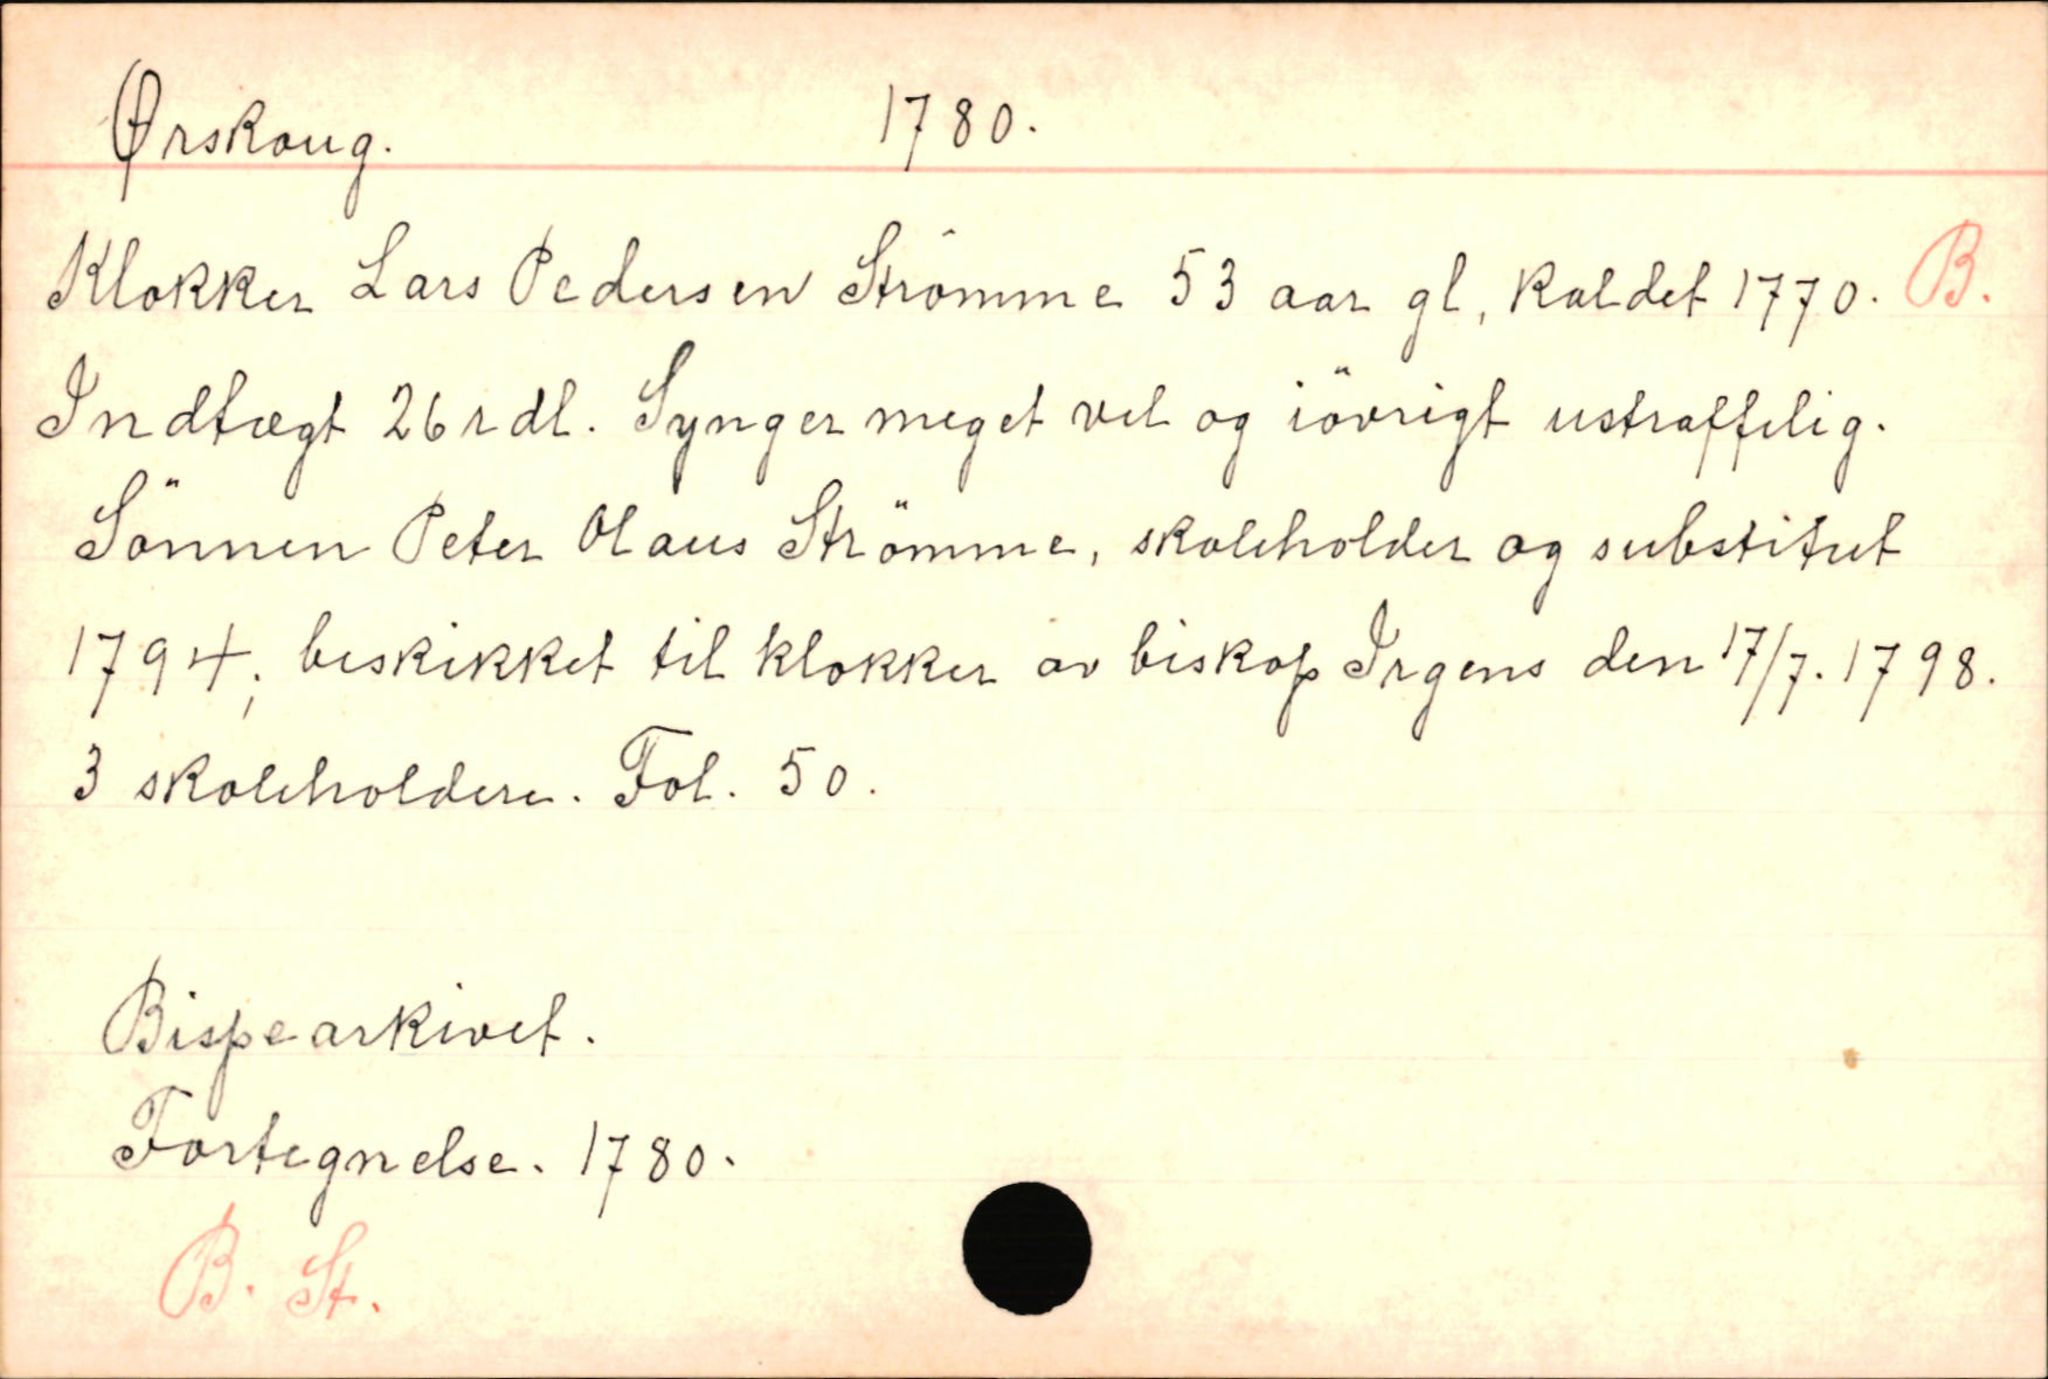 Ørskoug. 1780.
Klokker Lars Pedersen Strömme 53 aar gl, kaldet 1770. B.
Indtægt 26 rdl. Synger meget vel og iövrigt ustraffelig.
Sönnen Peter Olaus Strömme, skoleholder og substitut
1794; beskikket til klokker av biskop Irgens den 17/7. 1798.
3 skoleholdere. Fol. 50.
Bispearkivet.
Fortegnelse. 1780.
B. St.